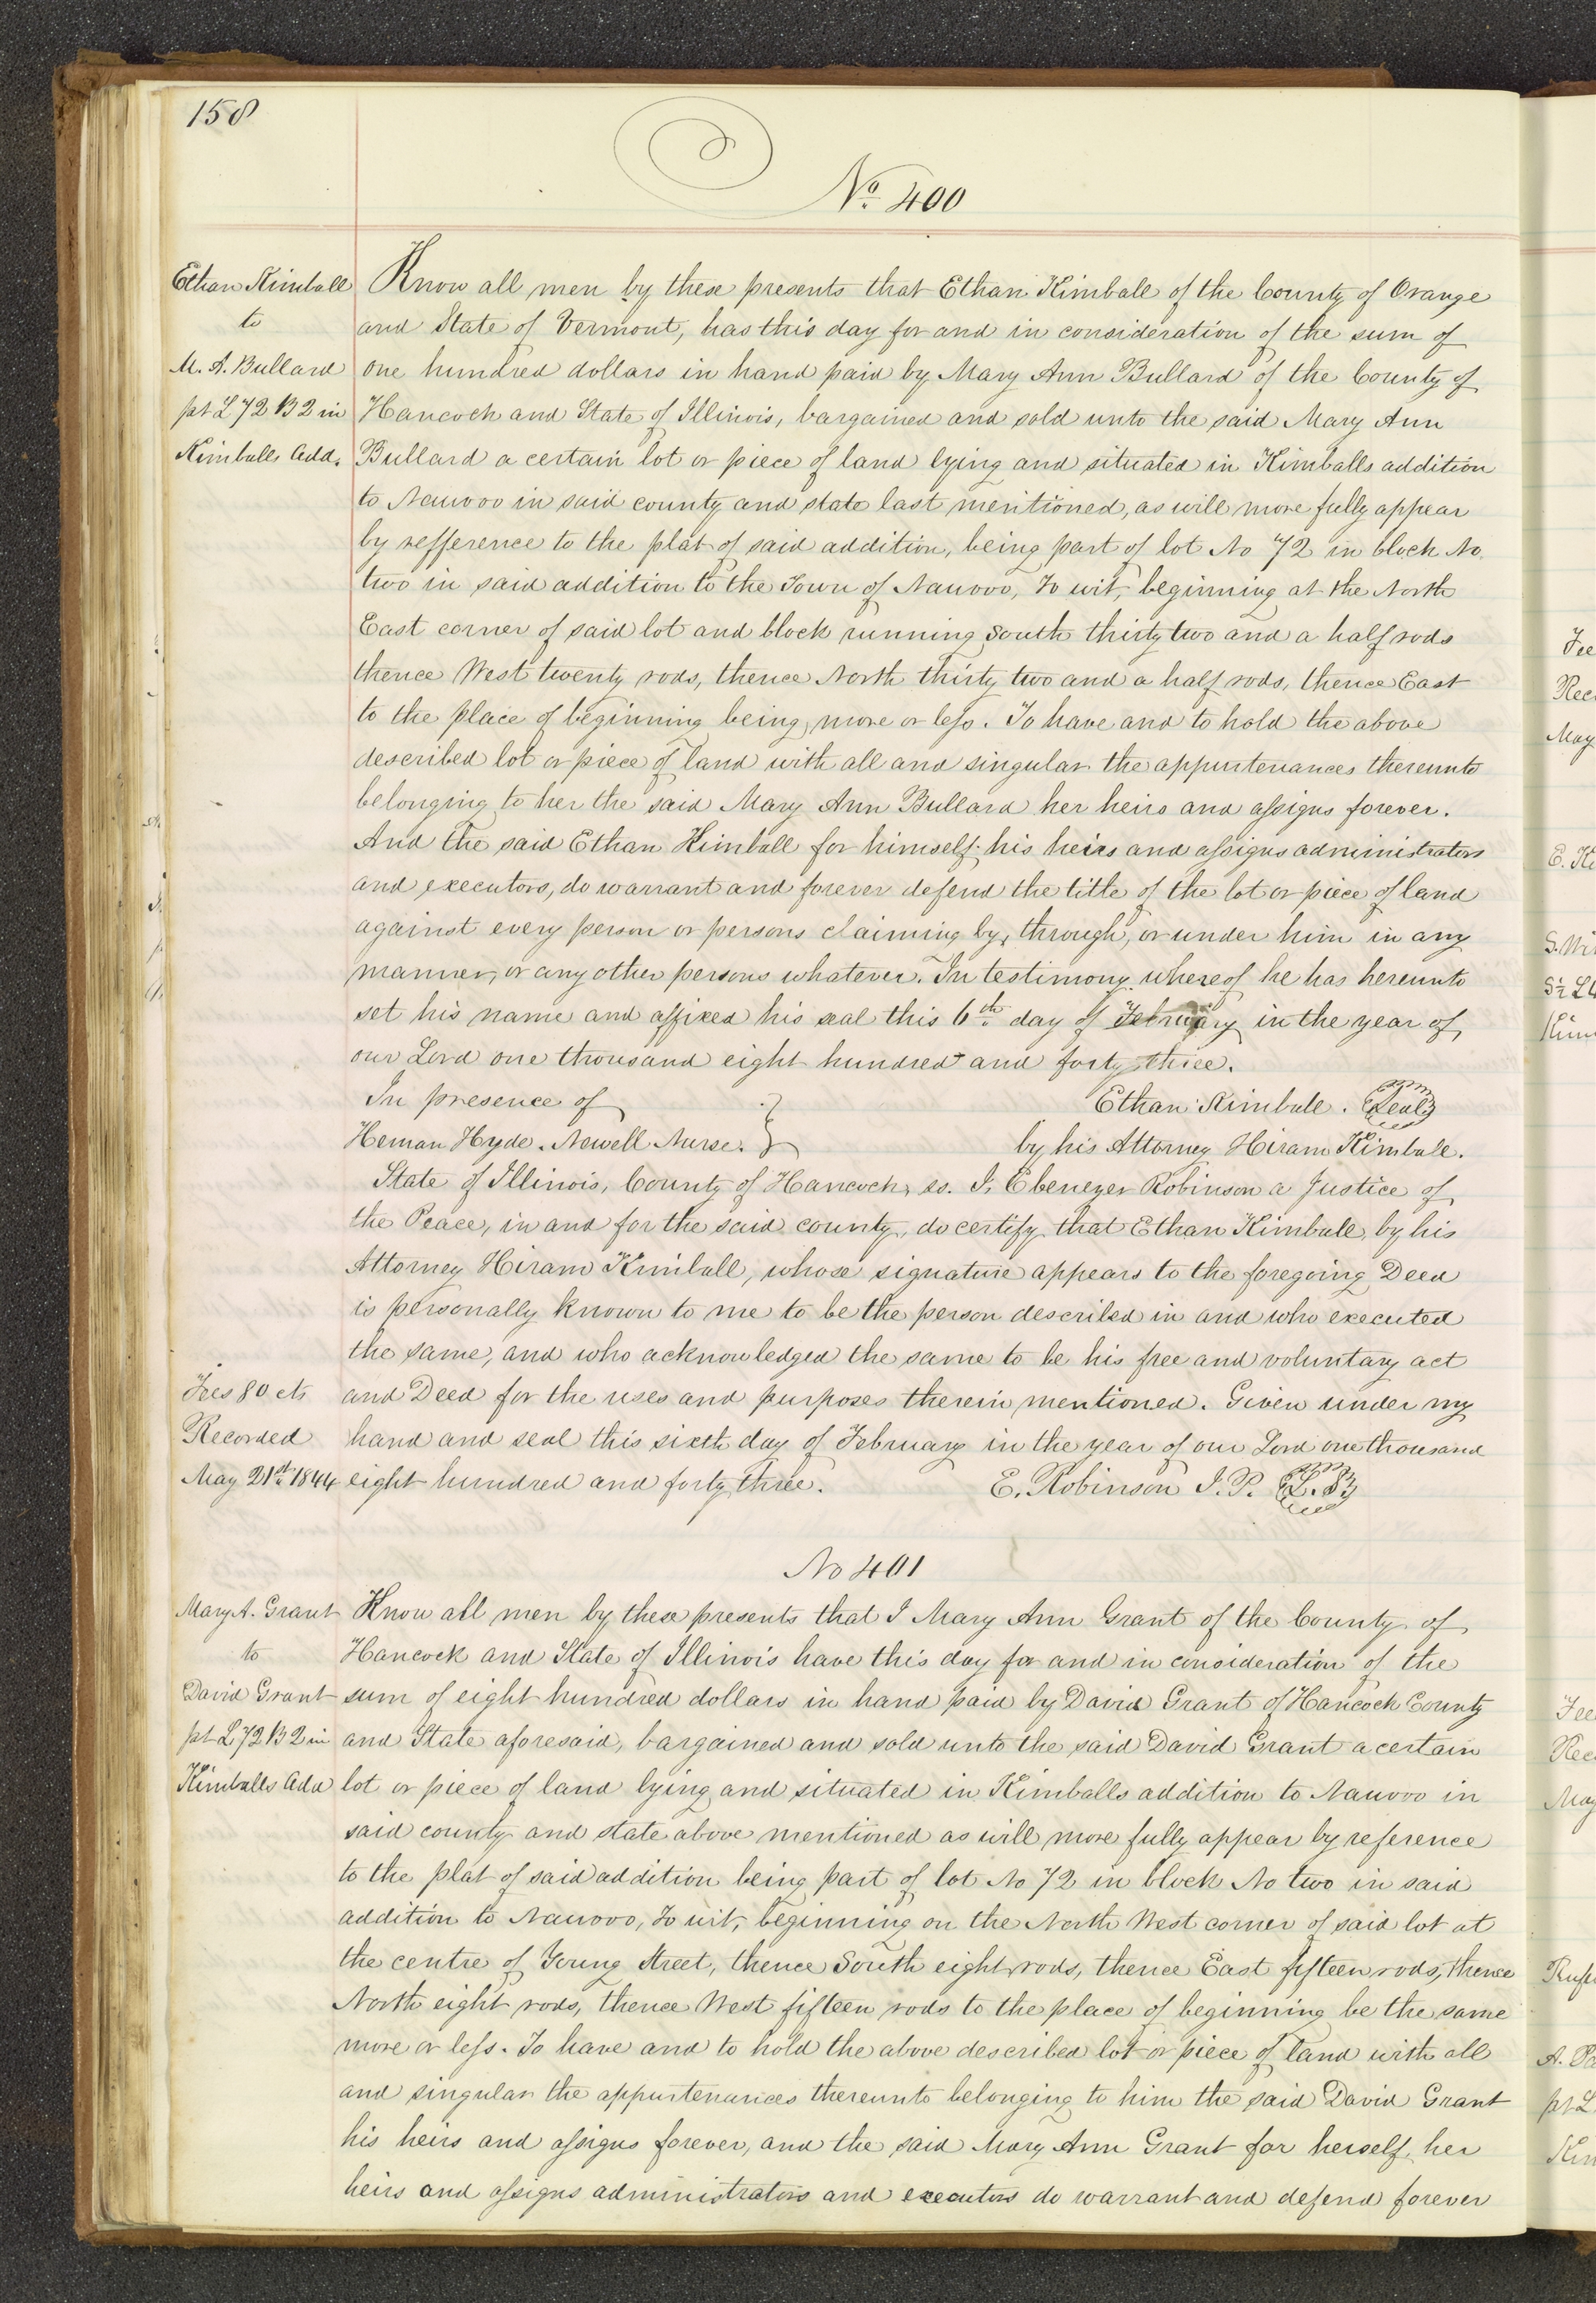 158
No. 400
Ethan Kimball
to
M. A. Bullard
pt L 72 B 2 in
Kimballs Add.
Know all men by these presents that Ethan Kimball of the County of Orange
and State of Vermont, has this day for and in consideration of the sum of
one hundred dollars in hand paid by Mary Ann Bullard of the County of
Hancock and State of Illinois, bargained and sold unto the said Mary Ann
Bullard a certain lot or piece of land lying and situated in Kimballs addition
to Nauvoo in said county and state last mentioned, as will more fully appear
by refference to the plat of said addition, being part of lot No 72 in block No.
two in said addition to the Town of Nauvoo, To wit, beginning at the North
East corner of said lot and block running South thirty two and a half rods
thence West twenty rods, thence North thirty two and a half rods, thence East
to the place of beginning being more or less. To have and to hold the above
described lot or piece of land with all and singular the appurtenances thereunto
belonging to her the said Mary Ann Bullard her heirs and assigns forever.
And the said Ethan Kimball for himself his heirs and assigns administrators
and executors, do warrant and forever defend the title of the lot or piece of land
against every person or persons claiming by, through, or under him in any
manner, or any other persons whatever. In testimony whereof he has hereunto
set his name and affixed his seal this 6th day of February in the year of
our Lord one thousand eight hundred and forty three.
In presence of
Heman Hyde. Newell Nurse. }
Ethan Kimball. Seal
by his Attorney Hiram Kimball.
State of Illinois, County of Hancock, ss. I, Ebenezer Robinson a Justice of
the Peace, in and for the said county, do certify that Ethan Kimball, by his
Attorney Hiram Kimball, whose signature appears to the foregoing Deed
is personally known to me to be the person described in and who executed
the same, and who acknowledged the same to be his free and voluntary act
and Deed for the uses and purposes therein mentioned. Given under my
hand and seal this sixth day of February in the year of our Lord one thousand
eight hundred and forty three.
E. Robinson J. P. L. S
Fees 80 cts
Recorded
May 21st 1844
No 401
Mary A. Grant
to
David Grant
pt L 72 B 2 in
Kimballs Add
Know all men by these presents that I Mary Ann Grant of the County of
Hancock and State of Illinois have this day for and in consideration of the
sum of eight hundred dollars in hand paid by David Grant of Hancock County
and State aforesaid, bargained and sold unto the said David Grant a certain
lot or piece of land lying and situated in Kimballs addition to Nauvoo in
said county and state above mentioned as will more fully appear by reference
to the plat of said addition being part of lot No 72 in block No two in said
addition to Nauvoo, To wit, beginning on the North West corner of said lot at
the centre of Young Street, thence South eight rods, thence East fifteen rods, thence
North eight rods, thence West fifteen rods to the place of beginning be the same
more or less. To have and to hold the above described lot or piece of land with all
and singular the appurtenances thereunto belonging to him the said David Grant
his heirs and assigns forever, and the said Mary Ann Grant for herself, her
heirs and assigns administrators and executors do warrant and defend forever
Fee
Rec
May
E. Ki
S. Wi
S½ L4
Kim
Fee
Rec
May
Ruf
A. Pa
pt L
Kin